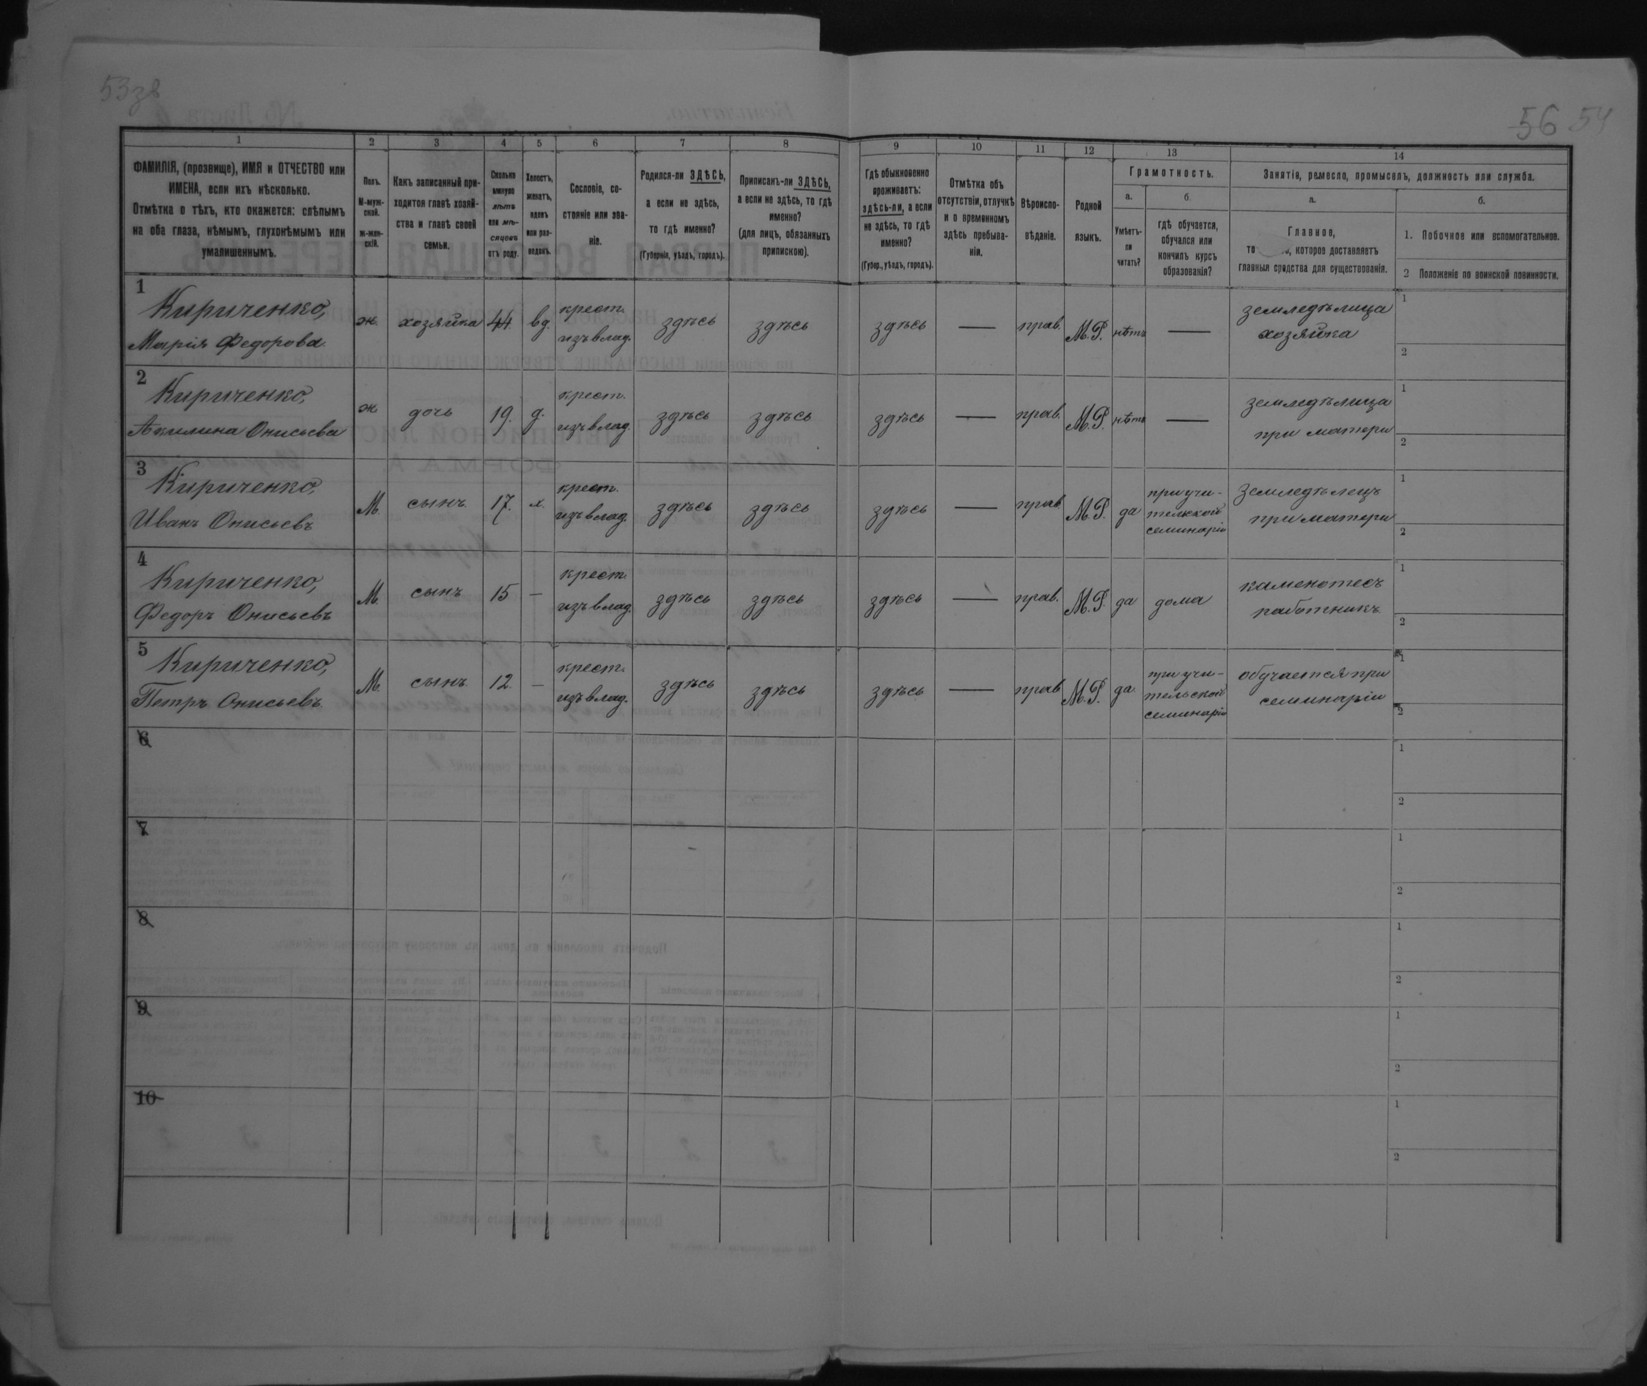 53зв
56 54
1
2
3
4
5
6
7
8
9
10
11
12
13
14
ФАМИЛІЯ, (прозвище), ИМЯ и ОТЧЕСТВО или
ИМЕНА, если ихъ нѣсколько.
Отмѣтка о тѣхъ, кто окажется: слѣпымъ
на оба глаза, нѣмымъ, глухонѣмымъ или
умалишеннымъ.
Полъ.
М-муж-
ской.
ж-жен-
скій.
Какъ записанный при-
ходится главѣ хозяй-
ства и главѣ своей
семьи.
Сколько
минуло
лѣтъ
или мѣ-
сяцевъ
отъ роду.
Холостъ,
женатъ,
вдовъ
или раз-
веденъ.
Сословіе, со-
стояніе или зва-
ніе.
Родился-ли ЗДѢСЬ,
а если не здѣсь,
то гдѣ именно?
(Губернія, уѣздъ, городъ).
Приписанъ-ли ЗДѢСЬ,
а если не здѣсь, то гдѣ
именно?
(для лицъ, обязанныхъ
припискою).
Гдѣ обыкновенно
проживаетъ:
здѣсь-ли, а если
не здѣсь, то гдѣ
именно?
(Губер., уѣздъ, городъ).
Отмѣтка объ
отсутствіи, отлучкѣ
и о временномъ
здѣсь пребыва-
ніи.
Вѣроиспо-
вѣданіе.
Родной
языкъ.
Грамотность.
а.
Умѣетъ-
ли
читать?
б.
гдѣ обучается,
обучался или
кончилъ курсъ
образованія?
Занятія, ремесло, промыселъ, должность или служба.
а.
Главное,
то , которое доставляетъ
главныя средства для существованія.
б.
1. Побочное или вспомогательное.
2 Положеніе по воинской повинности.
1
Кириченко,
Марія Федорова
ж.
хозяйка
44
вд.
крест.
изъ влад.
здѣсь
здѣсь
здѣсь
—
прав.
М.Р.
нѣтъ
—
земледѣлица
хозяйка
1
2
2
Кириченко,
Акилина Онисьева
ж.
дочь
19.
д.
крест.
изъ влад.
здѣсь
здѣсь
здѣсь
—
прав.
М.Р.
нѣтъ
—
земледѣлица
при матери
1
2
3
Кириченко,
Иванъ Онисьевъ
М
сынъ
17.
х.
крест.
изъ влад.
здѣсь
здѣсь
здѣсь
—
прав.
М.Р.
да
при учи-
тельской
семинаріи
земледѣлецъ
при матери
1
2
4
Кириченко,
Федоръ Онисьевъ
М.
сынъ
15
—
крест.
изъ влад.
здѣсь
здѣсь
здѣсь
—
прав.
М.Р.
да
дома
каменотесъ
работникъ
1
2
5
Кириченко,
Петръ Онисьевъ
М.
сынъ
12.
—
крест.
изъ влад.
здѣсь
здѣсь
здѣсь
—
прав.
М.Р.
да
при учи-
тельской
семинаріи
обучается при
семинаріи
1
2
6
1
2
7
1
2
8
1
2
9
1
2
10
1
2